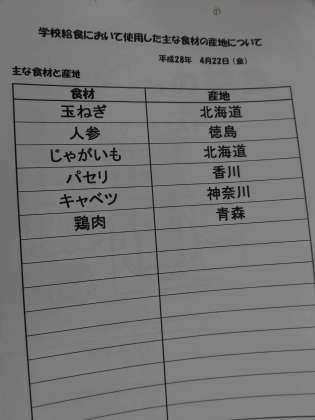 学校給食において使用した主な食材の産地について
平成28年 4月22日(金)
主な食材と産地
食材 産地
玉ねぎ 北海道
人参 徳島
じゃがいも 北海道
パセリ 香川
キャベツ 神奈川
鶏肉 青森